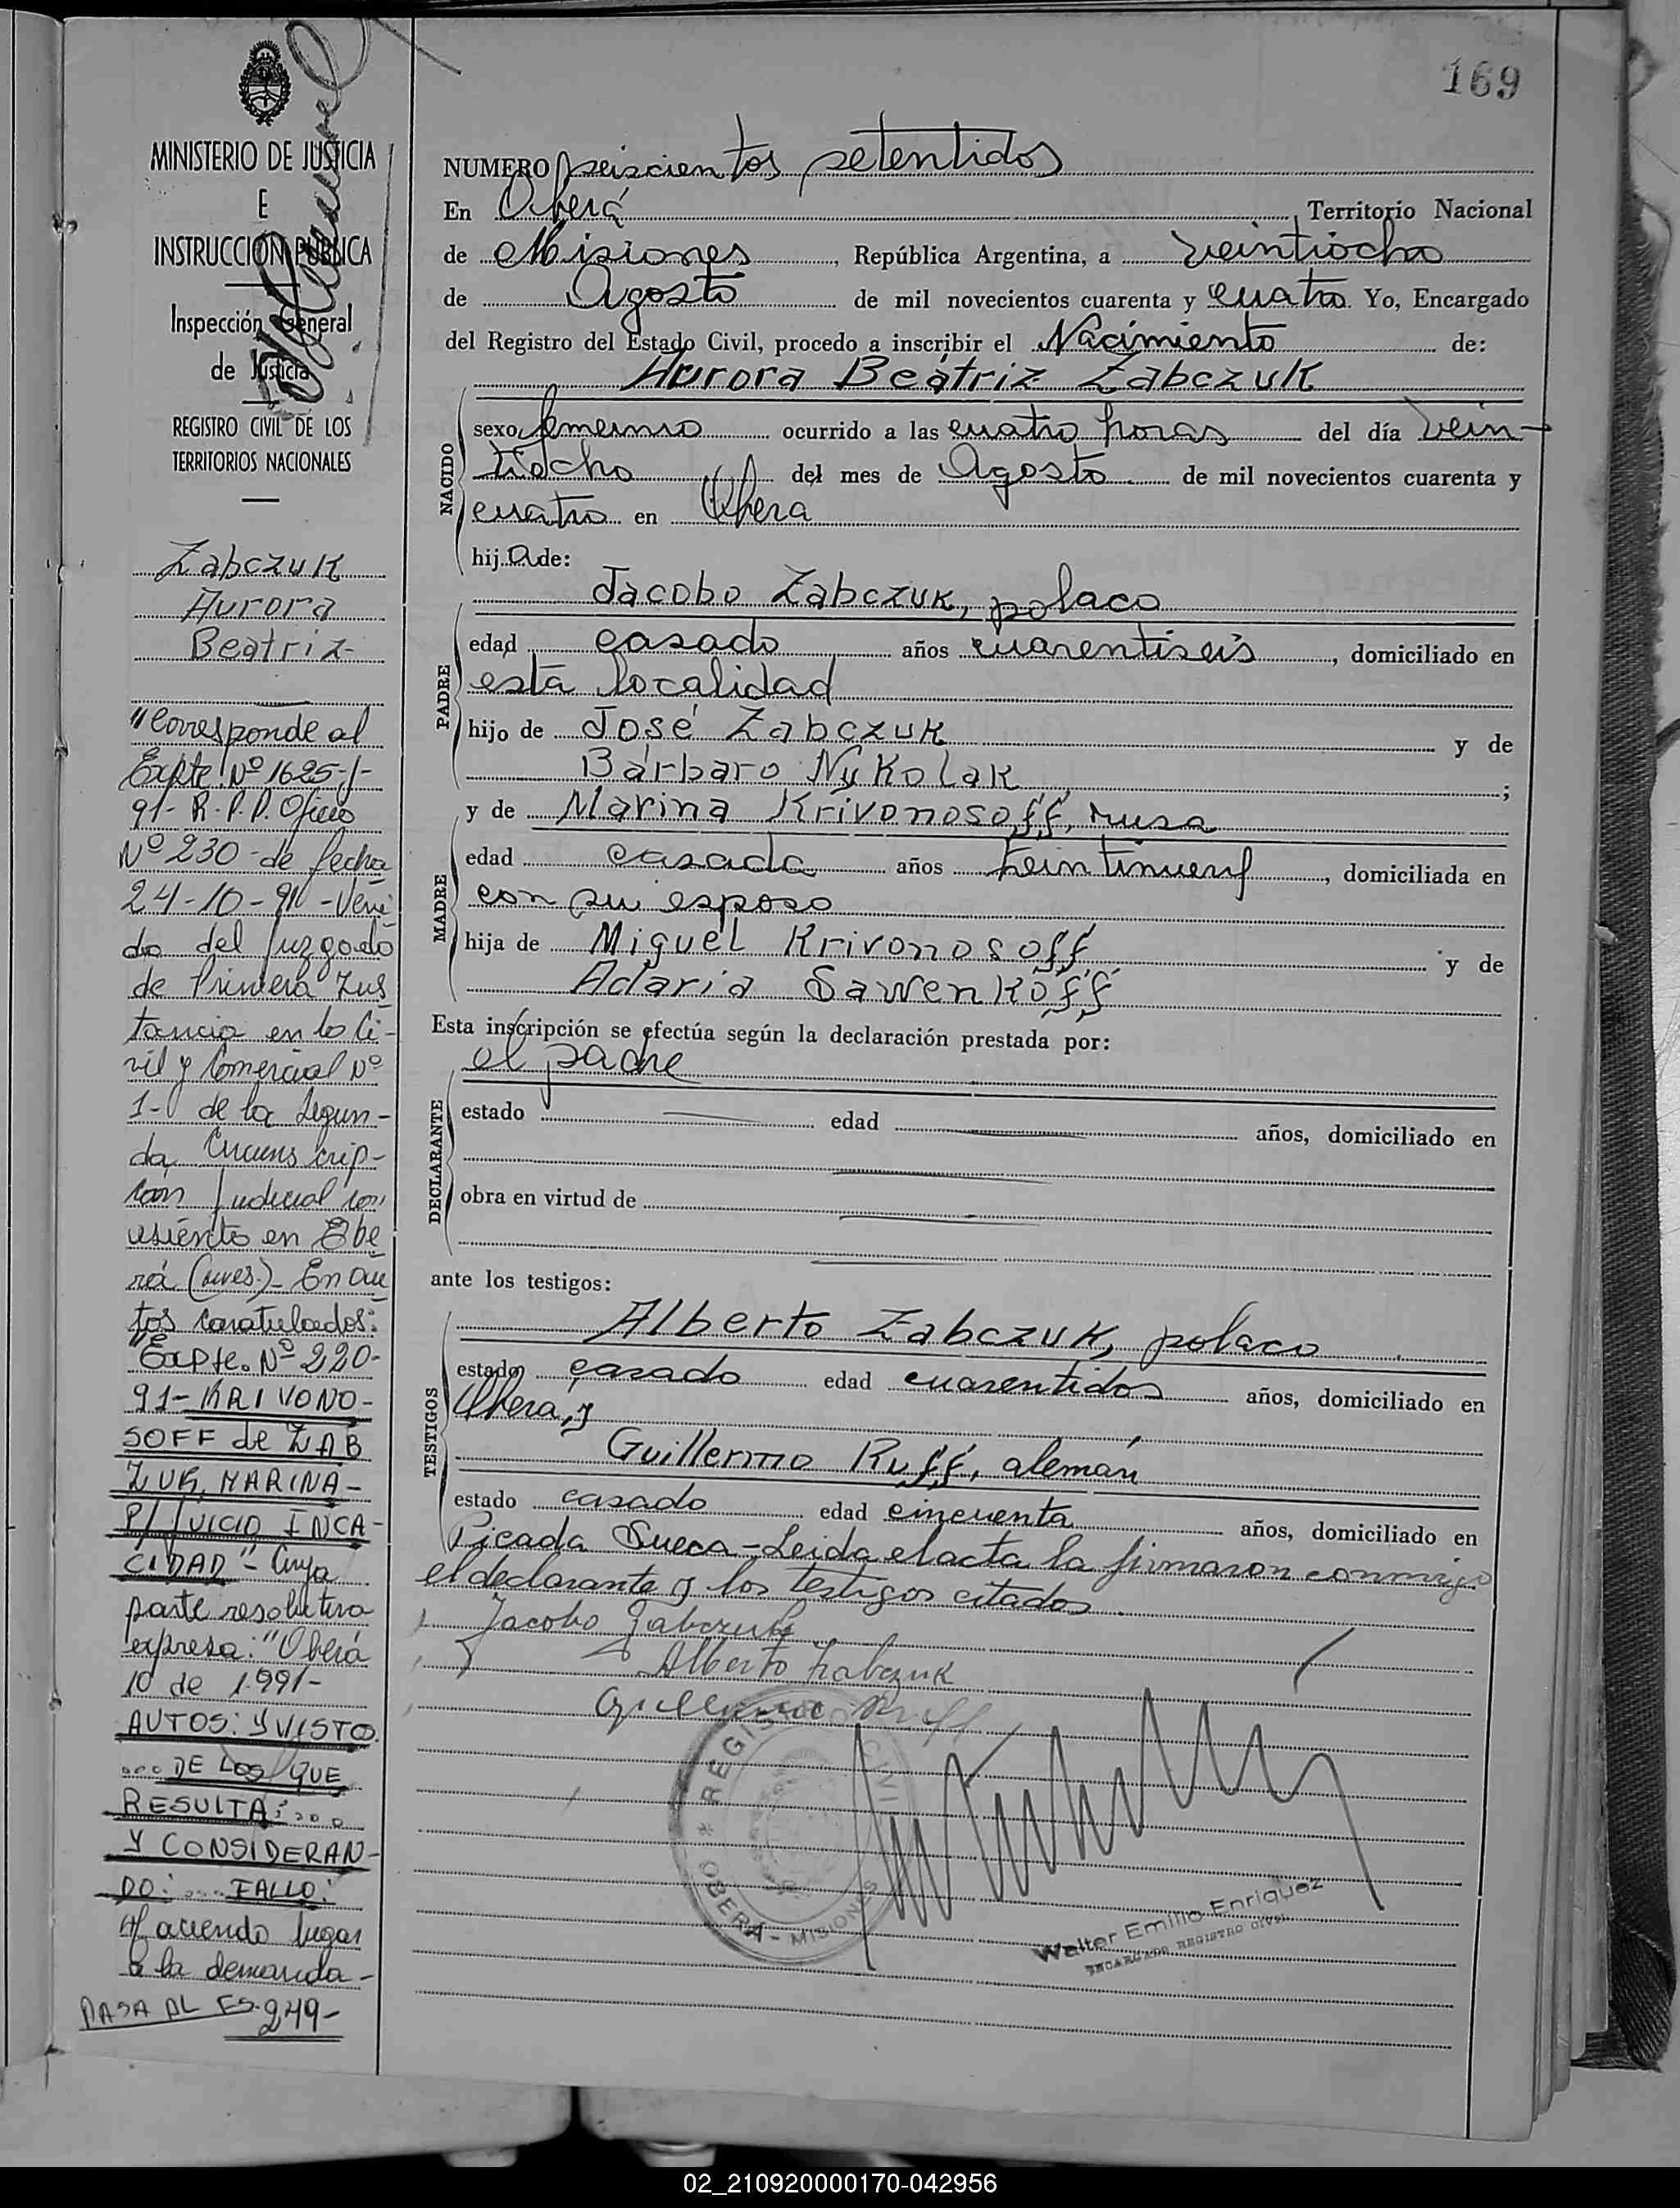 169
MINISTERIO DE JUSTICIA
E
INSTRUCCIÓN PÚBLICA
Inspección General
de Justicia
REGISTRO CIVIL DE LOS
TERRITORIOS NACIONALES
Zabczuk
Aurora
Beatriz
"Corresponde al
Expte. Nº 1625-J-
91- R.P.P. Oficio
Nº 230- de fecha
24-10-91- Veni
do del Juzgado
de Primera Ins
tancia en lo Ci-
vil y Comercial Nº
1- de la Segun-
da Circuns crip-
ción Judicial con
asiento en Obe
rá (mnes.)- En au
tos caratulados:
"Expte. Nº 220-
91- KRIVONO-
SOFF de ZAB
ZUK, MARINA-
P/ JUICIO INCA-
CIDAD"- Cuya
parte resolutiva
expresa: "Oberá
10 de 1.991-
AUTOS: Y VISTO
... DE LOS QUE
RESULTA: ...
Y CONSIDERAN-
DO: .... FALLO:
Haciendo lugar
a la demanda-
PASA AL FS. 249-
NUMERO seiscientos setentidos
En Oberá, Territorio Nacional
de Misiones, República Argentina, a veintiocho
de Agosto de mil novecientos cuarenta y cuatro. Yo, Encargado
del Registro del Estado Civil, procedo a inscribir el Nacimiento de:
Aurora Beatriz Zabczuk
NACIDO
sexo femenino ocurrido a las cuatro horas del día vein-
tiocho del mes de Agosto de mil novecientos cuarenta y
cuatro en Obera
hija de:
PADRE
Jacobo Zabczuk, polaco
edad casado años cuarentiseis, domiciliado en
esta localidad
hijo de José Zabczuk y de
Bárbaro Nykolak;
MADRE
y de Marina Krivonosoff, rusa
edad casada años veintinueve, domiciliada en
con su esposo
hija de Miguel Krivonosoff y de
Adaria Sawenkoff
Esta inscripción se efectúa según la declaración prestada por:
DECLARANTE
el padre
estado edad años, domiciliado en
obra en virtud de
ante los testigos:
TESTIGOS
Alberto Zabczuk, polaco
estado casado edad cuarentidos años, domiciliado en
Obera, y
Guillermo Ruff, alemán
estado casado edad cincuenta años, domiciliado en
Picada Sueca-Leida el acta la firmaron conmigo
el declarante y los testigos citados.
Jacobo Zabczuk
Alberto Zabczuk
Guillermo Ruff
* REGISTRO CIVIL
OBERÁ - MISIONES
Walter Emilio Enriquez
ENCARGADO REGISTRO CIVIL
02_210920000170-042956